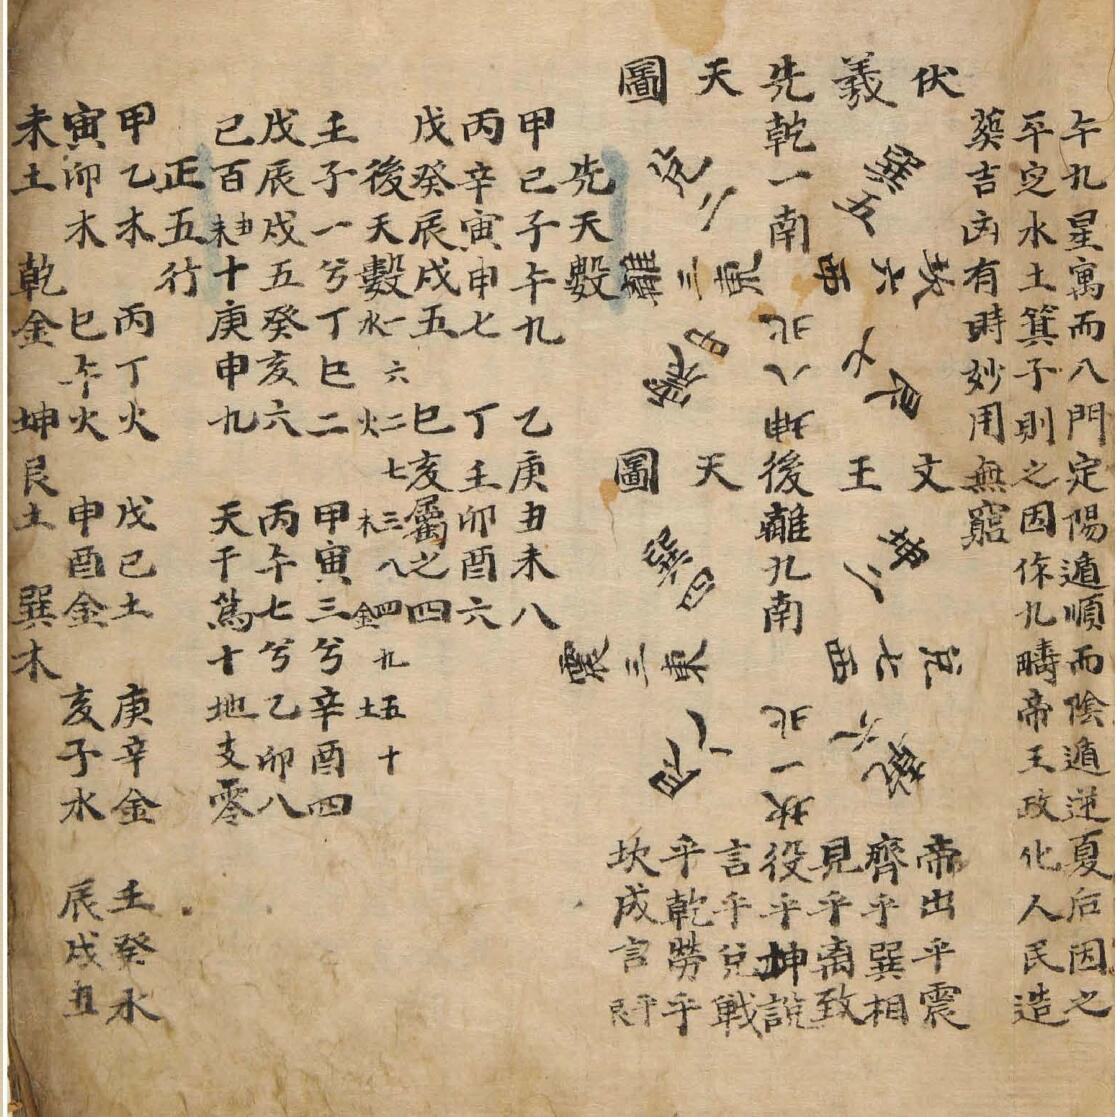 午九星寓而八門定陽遁順而陰遁逆夏后因之
平定水土箕子則之因作九疇帝王政化人民造
葬吉凶有時妙用無窮
伏羲先天圖
乾一南
巽五
兌二
坎六西
離三東
艮七
震四
坤八北
文王後天圖
離九南
坤二
巽四
兌七西
震三東
乾六
艮八
坎一北
帝出乎震
齊乎巽相
見乎离致
役乎坤說
言乎兌戰
乎乾勞乎
坎成言乎艮
先天數
甲己子午九 乙庚丑未八
丙辛寅申七 丁壬卯酉六
戊癸辰戌五 巳亥屬之四
後天數 水一六 火二七 木三八 金四九 土五十
壬子一兮丁巳二 甲寅三兮辛酉四
戊辰戌五癸亥六 丙午七兮乙卯八
己百丑未十庚申九 天干萬十地支零
正五行
甲乙木 丙丁火 戊己土 庚辛金 壬癸水
寅卯木 巳午火 申酉金 亥子水 辰戌丑
未土 乾金 坤艮土 巽木